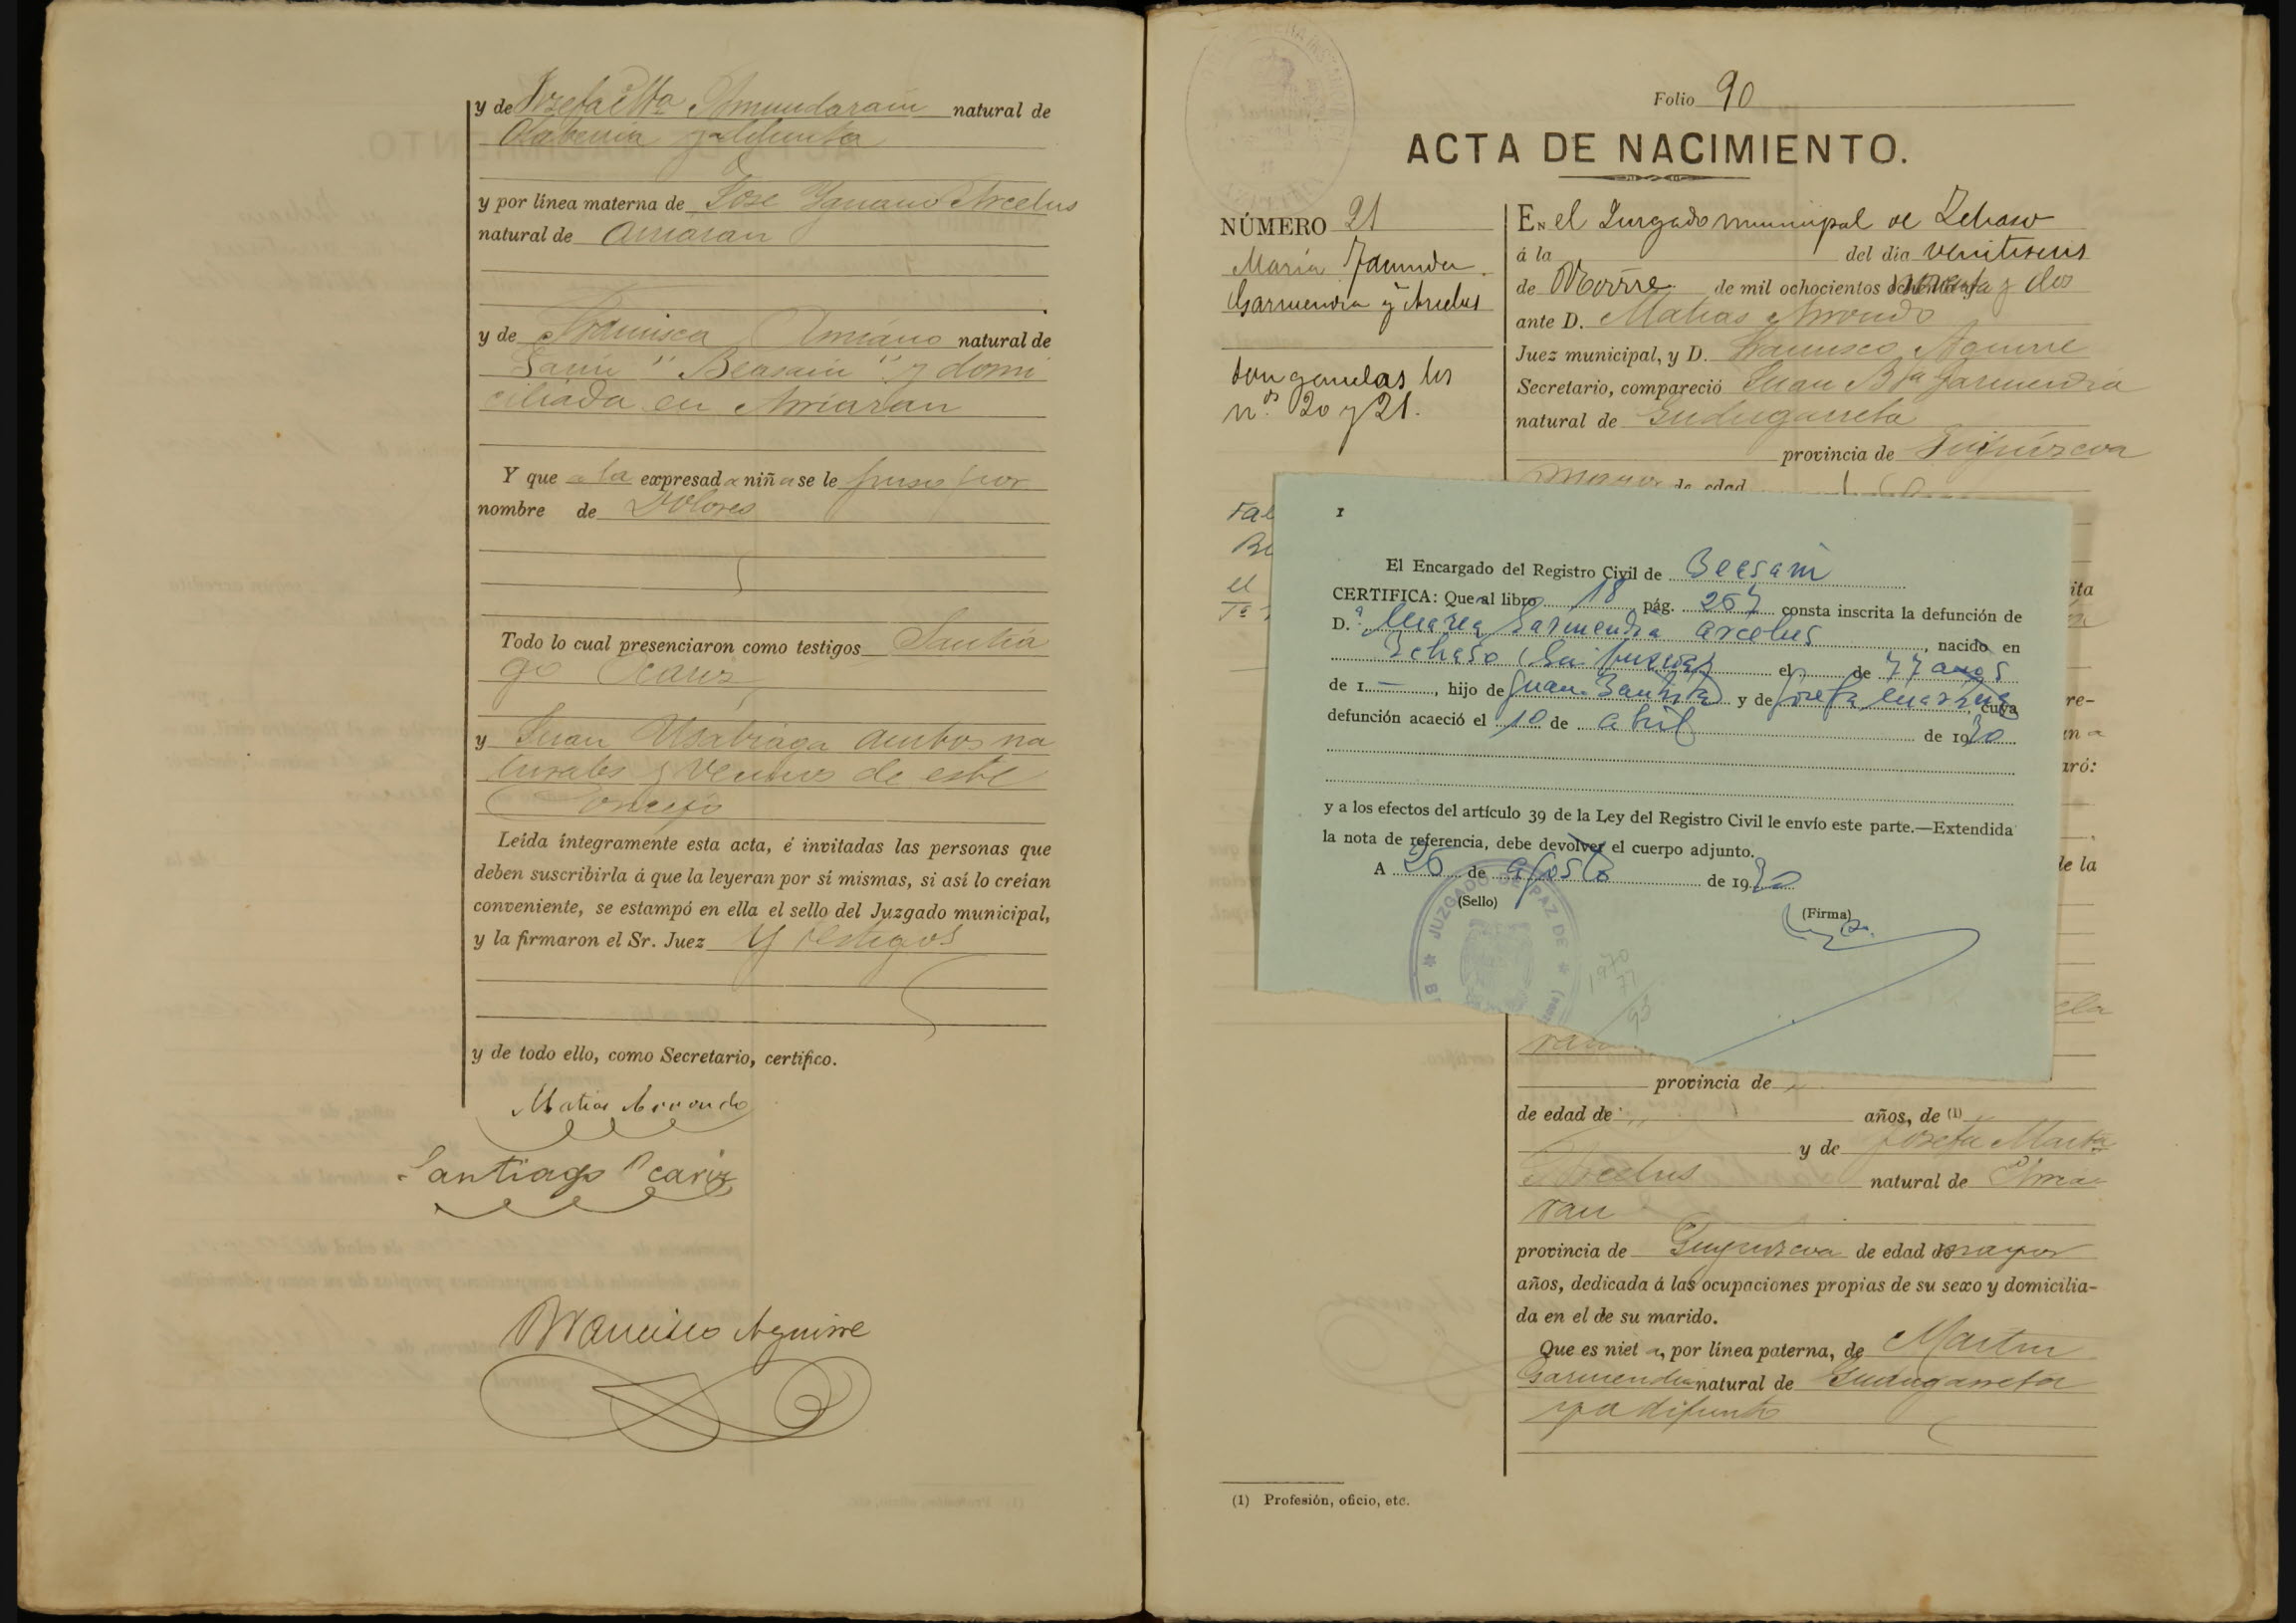 y de Josefa Mª Amundarain natural de
Olaberria ya difunta
y por línea materna de Jose Ygnacio Arcelus
natural de Arriaran
y de Francisca Amiano natural de
" Beasain " y domi
ciliada en Arriaran
Y que a la expresad a niñ a se le puso por
nombre de Dolores
Todo lo cual presenciaron como testigos Santia
go Ocariz
y Juan Usabiaga ambos na
turales y vecinos de este
Concejo
Leída íntegramente esta acta, é invitadas las personas que
deben suscribirla á que la leyeran por sí mismas, si así lo creían
conveniente, se estampó en ella el sello del Juzgado municipal,
y la firmaron el Sr. Juez y testigos
y de todo ello, como Secretario, certifico.
Matias Arrondo
Santiago Ocariz
Francisco Aguirre
Folio 90
ACTA DE NACIMIENTO.
NÚMERO 21
Maria Facunda
Garmendia y Arcelus
Son gemelas los
n.os 20 y 21.
EN el Juzgado municipal de Ichaso
á la del dia veintiseis
de Novbre de mil ochocientos noventa y dos
ante D. Matias Arrondo
Juez municipal, y D. Francisco Aguirre
Secretario, compareció Juan Bta Garmendia
natural de Gudugarreta
provincia de Guipúzcoa
mayor de edad
I
El Encargado del Registro Civil de Beasain
CERTIFICA: Que al libro 18 pág. 267 consta inscrita la defunción de
D.ª Maria Garmendia Arcelus, nacido en
Ichaso (Guipuzcoa) el de 77 años
de 1 —, hijo de Juan Bautista y de Josefa Martina, cuya
defunción acaeció el 10 de abril de 1970
y a los efectos del artículo 39 de la Ley del Registro Civil le envío este parte.—Extendida
la nota de referencia, debe devolver el cuerpo adjunto.
A 26 de agosto de 1970
(Sello)
(Firma)
JUZGADO DE PAZ DE
1970
77
93
provincia de
de edad de años, de (1)
y de Josefa Marta
Arcelus natural de Arria
ran
provincia de Guipuzcoa de edad mayor
años, dedicada á las ocupaciones propias de su sexo y domicilia-
da en el de su marido.
Que es niet a, por línea paterna, de Martin
Garmendia natural de Gudugarreta
ya difunto
(1) Profesión, oficio, etc.